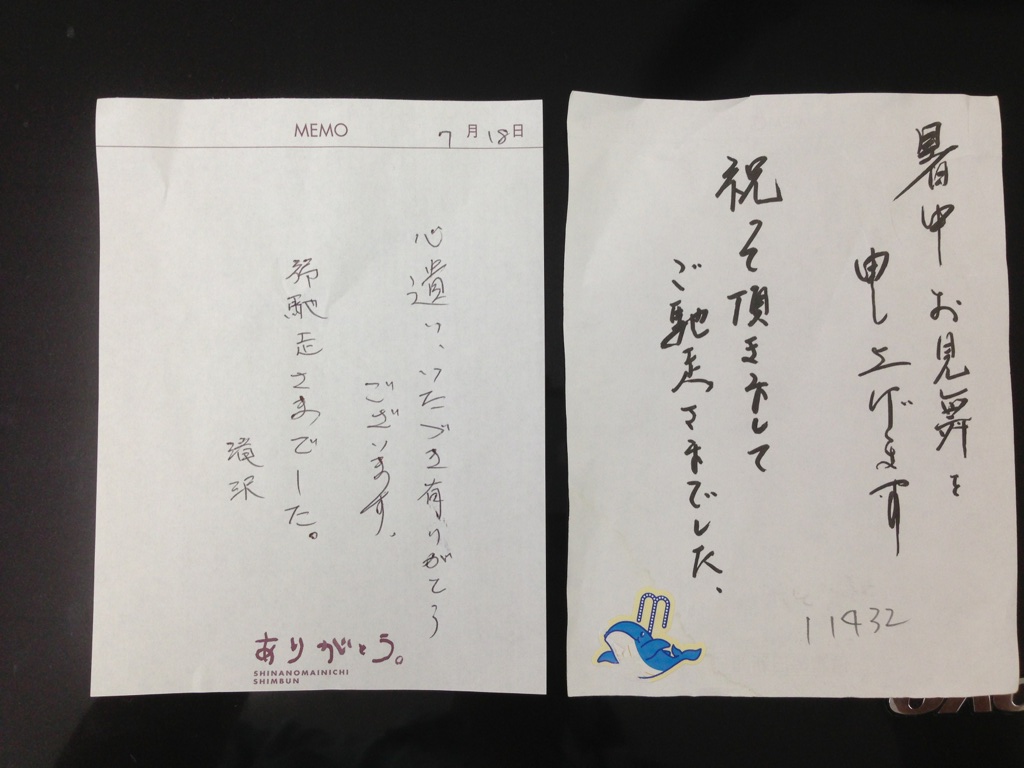 MEMO 7月18日
心遣い、いたゞき有りがとう
ございます。
御馳走さまでした。
滝沢
ありがとう。
SHINANOMAINICHI
SHIMBUN
暑中お見舞を
申し上げます
祝って頂きまして
ご馳走さまでした、
11432